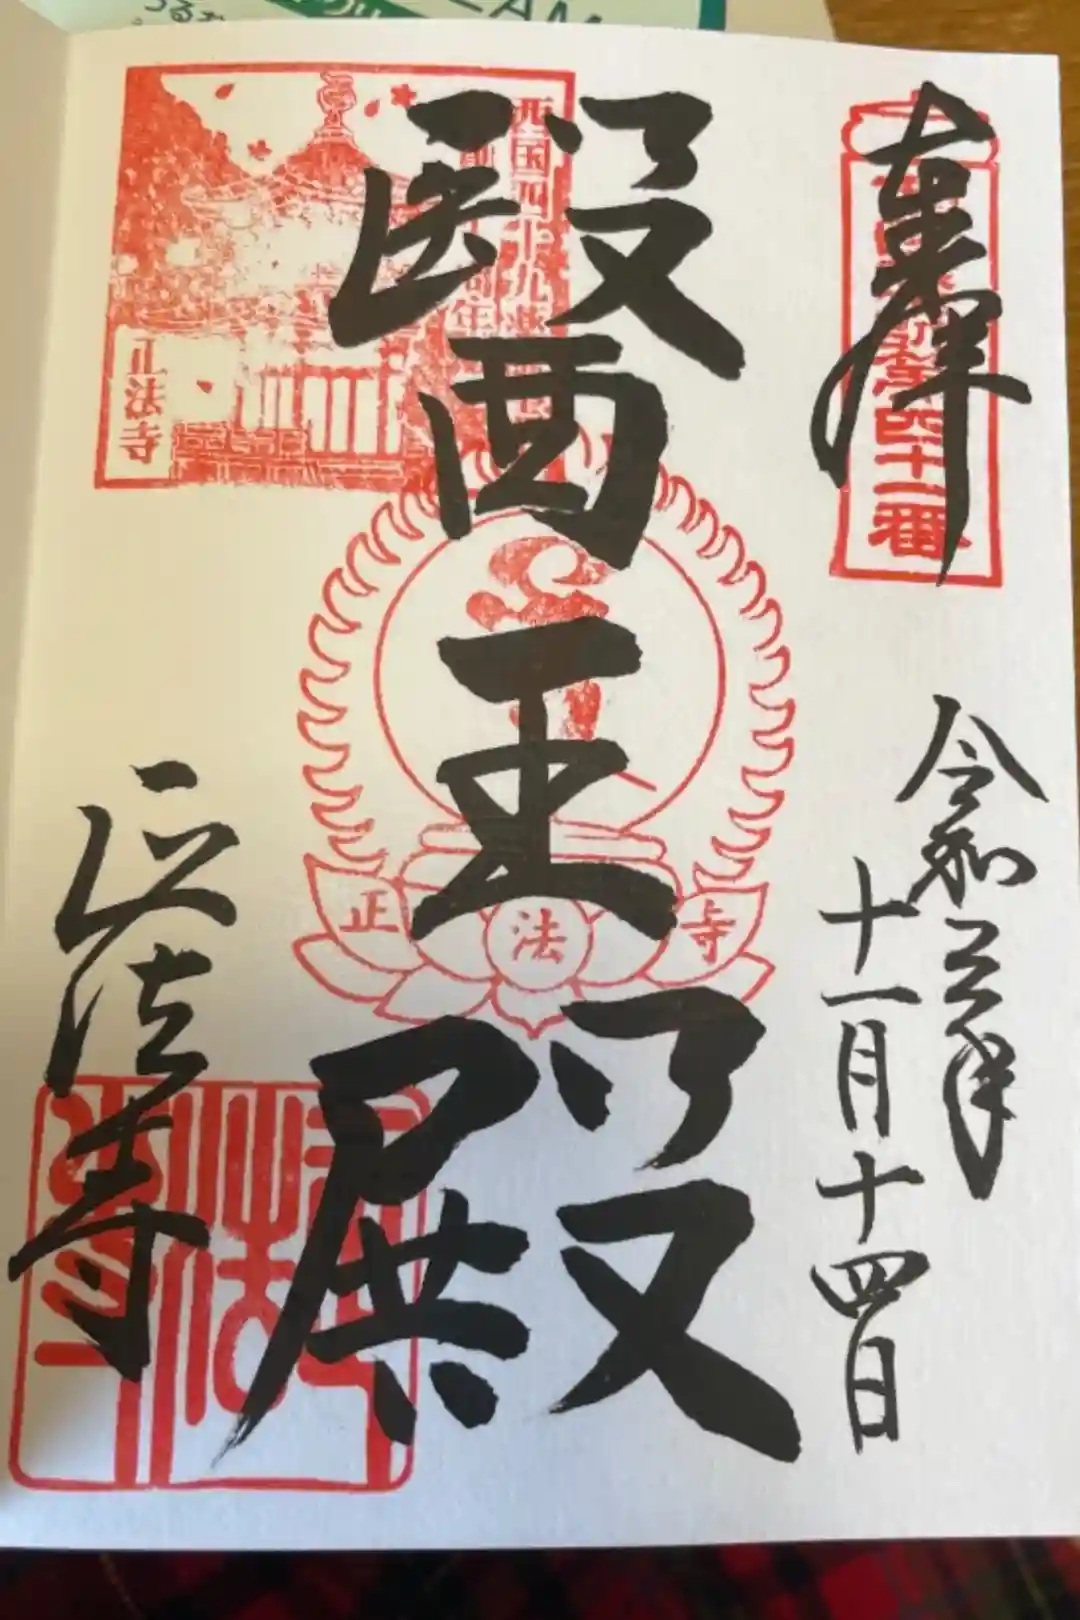 奉拝
四十一番
令和三年
十一月十四日
醫王殿
西国四十九薬
正法寺
正法寺
正法寺